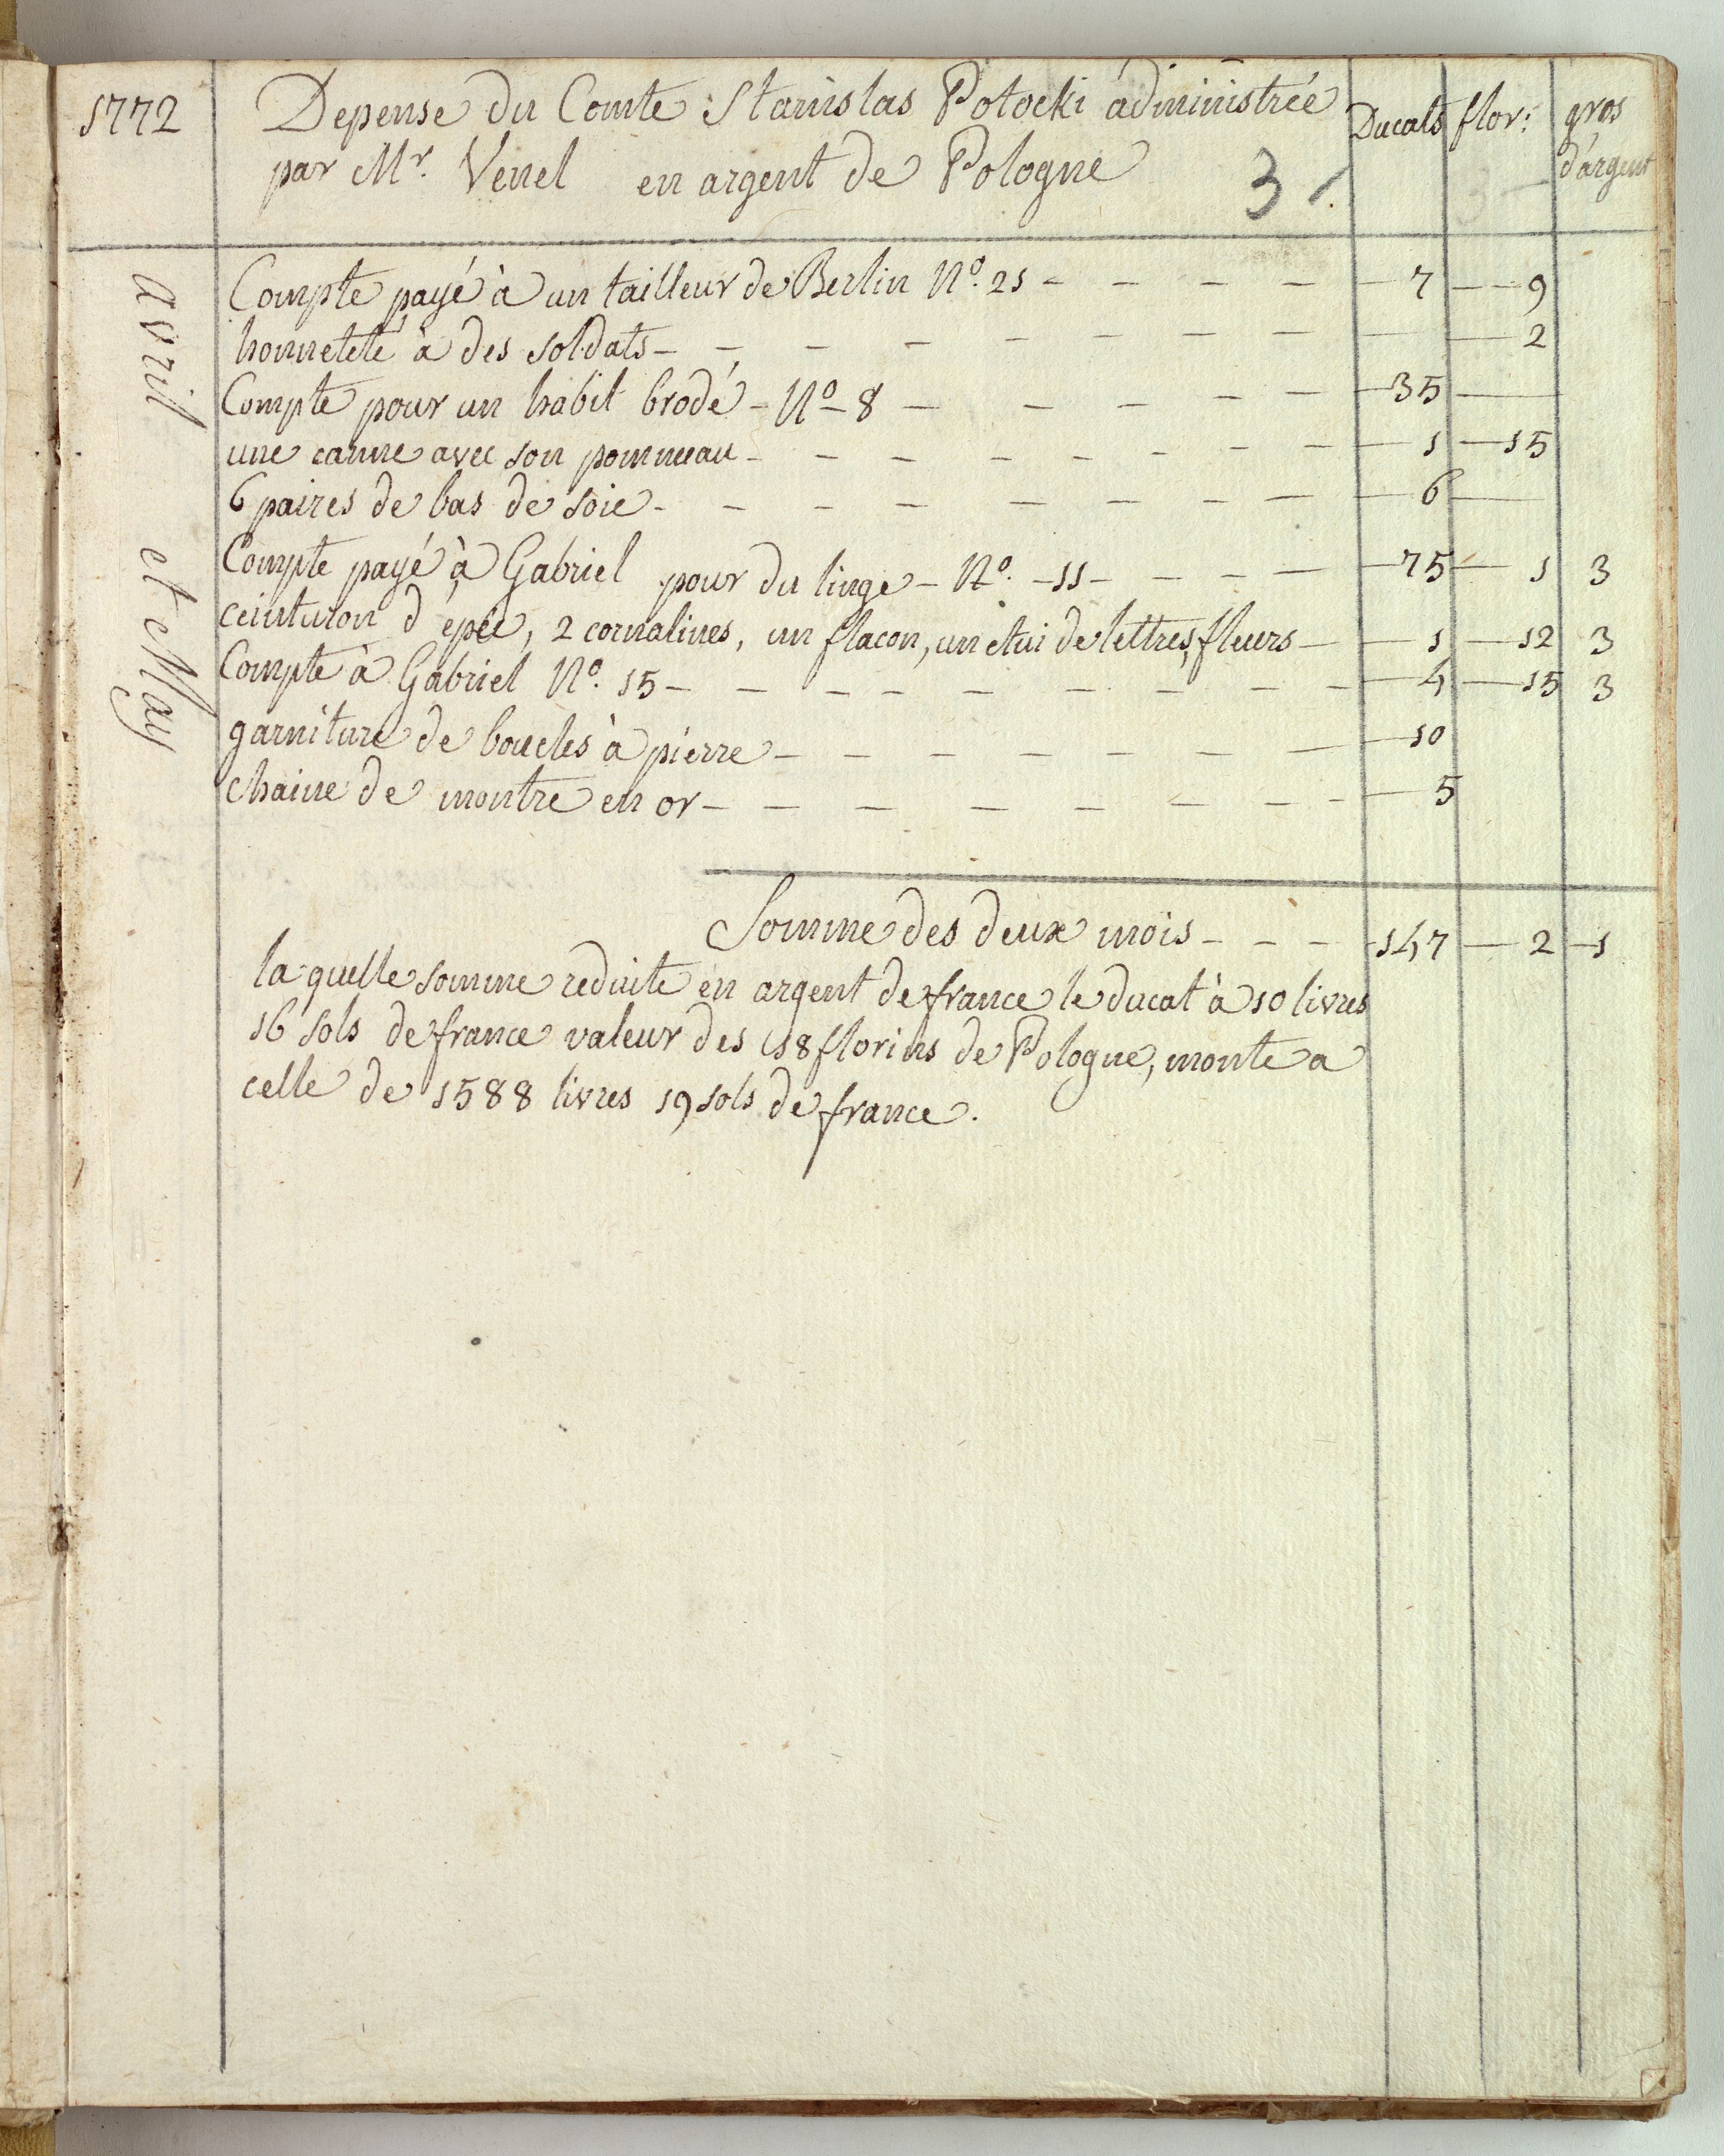 1772
Depense du Comte Stanislas Potocki administrée
par Mr. Venel en argent de Pologne
3
Ducats flor: gros
d'argent
avril et May
Compte payé à un tailleur de Berlin No. 21 - - - - 7 - 9
honneteté à des soldats - - - - - - - - 2
Compte pour un habit brodé - No - 8 - - - - - 35
une canne avec son pommeau - - - - - - - 1 - 15
6 paires de bas de soie - - - - - - - 6
Compte payé à Gabriel pour du linge - No. - 11 - - - - 75 - 1 3
ceinturon d'épée, 2 cornalines, un flacon, un etui de lettres, fleurs - 1 - 12 3
Compte à Gabriel No. 15 - - - - - - - - 4 - 15 3
garniture de boucles à pierre - - - - - - - 10
chaine de montre en or - - - - - - - - 5
Somme des deux mois - - - 147 - 2 - 1
la quelle somme reduite en argent de france le ducat à 10 livres
16 sols de france valeur des 18 florins de Pologne, monte a
celle de 1588 livres 19 sols de france.